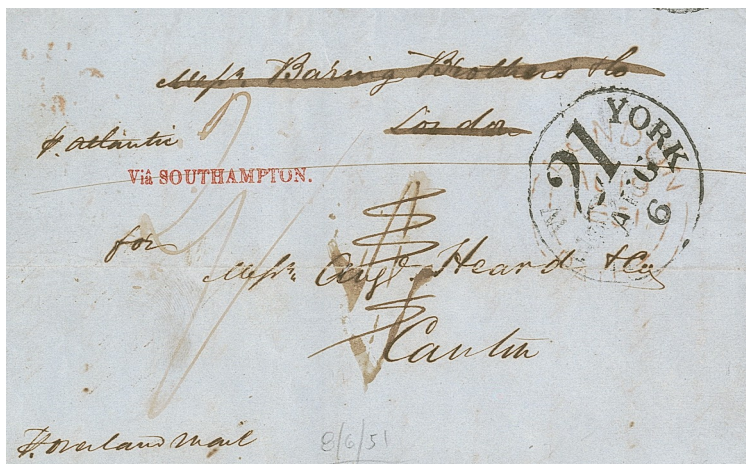 Messrs. Baring Brothers & Co
London
p. Atlantic
Viâ SOUTHAMPTON.
YORK
21
AUG
6
LONDON
for
Messrs. Augt. Heard & Co
Canton
p. overland mail
8/6/51